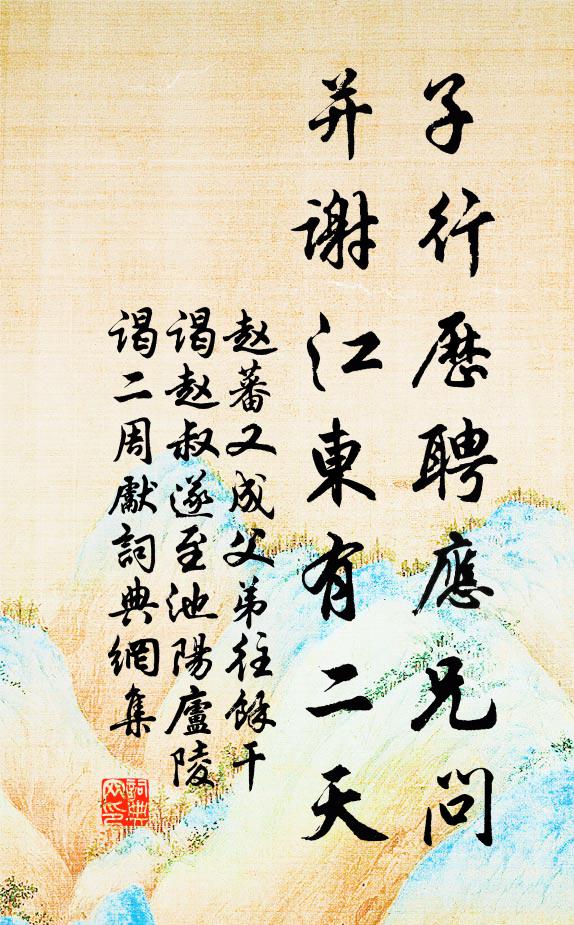 子行歷聘應兄問
并謝江東有二天
赵蕃又成父弟往餘干
谒赵叔遂至池陽廬陵
谒二周獻詞典網集
詞典
网印